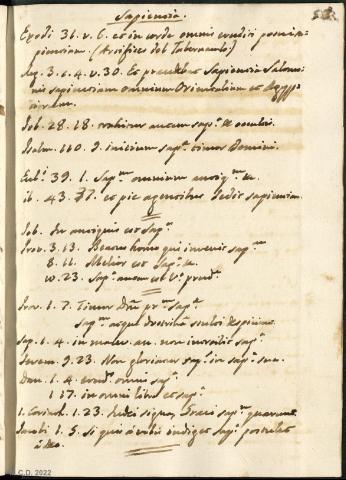 Sapiencia.
Exodi 31. v. 6. et in corde omnis eruditi posui sa-
pientiam. (Artifices del Tabernaculo:)
Reg. 3. c. 4. v. 30. Et præcedebat Sapiencia Salomo-
nis sapienciam omnium Orientalium et Ægyp-
Job. 28. 18. trahitur autem sapª. de occultis.
Psalm. 110. 9. inicium sapª. timor Domini.
Ecclⁱ. 39. 1. Sapᵐ. omnium antiqᵐ. &.
ib. 43. 37. et pie agentibus dedit sapienciam.
Job. In antiquis est Sapª.
Prov. 3. 13. Beatus homo qui invenit sapᵐ
8. 11. Melior est Sapª. &.
10. 23. Sapª. autem est Vº prudª.
Prov. 1. 7. Timor Dni prᵐ. Sapª.
Sapᵐ. atque doctrinam stulti despiciunt.
Sap. 1. 4. in malev. an. non introibit sapª.
Jerem. 9. 23. Non glorietur sapˢ. in sapª. sua.
Dan. 1. 4. erudˢ. omni sapª.
1 17. in omni libro et sapª.
1. Corinth. 1. 23. Judei signa, Graeci sapᵐ. quærunt
Jacobi 1. 5. Si quis vestrum indiget Sapª. postulet
à Deo.
C.D. 2022